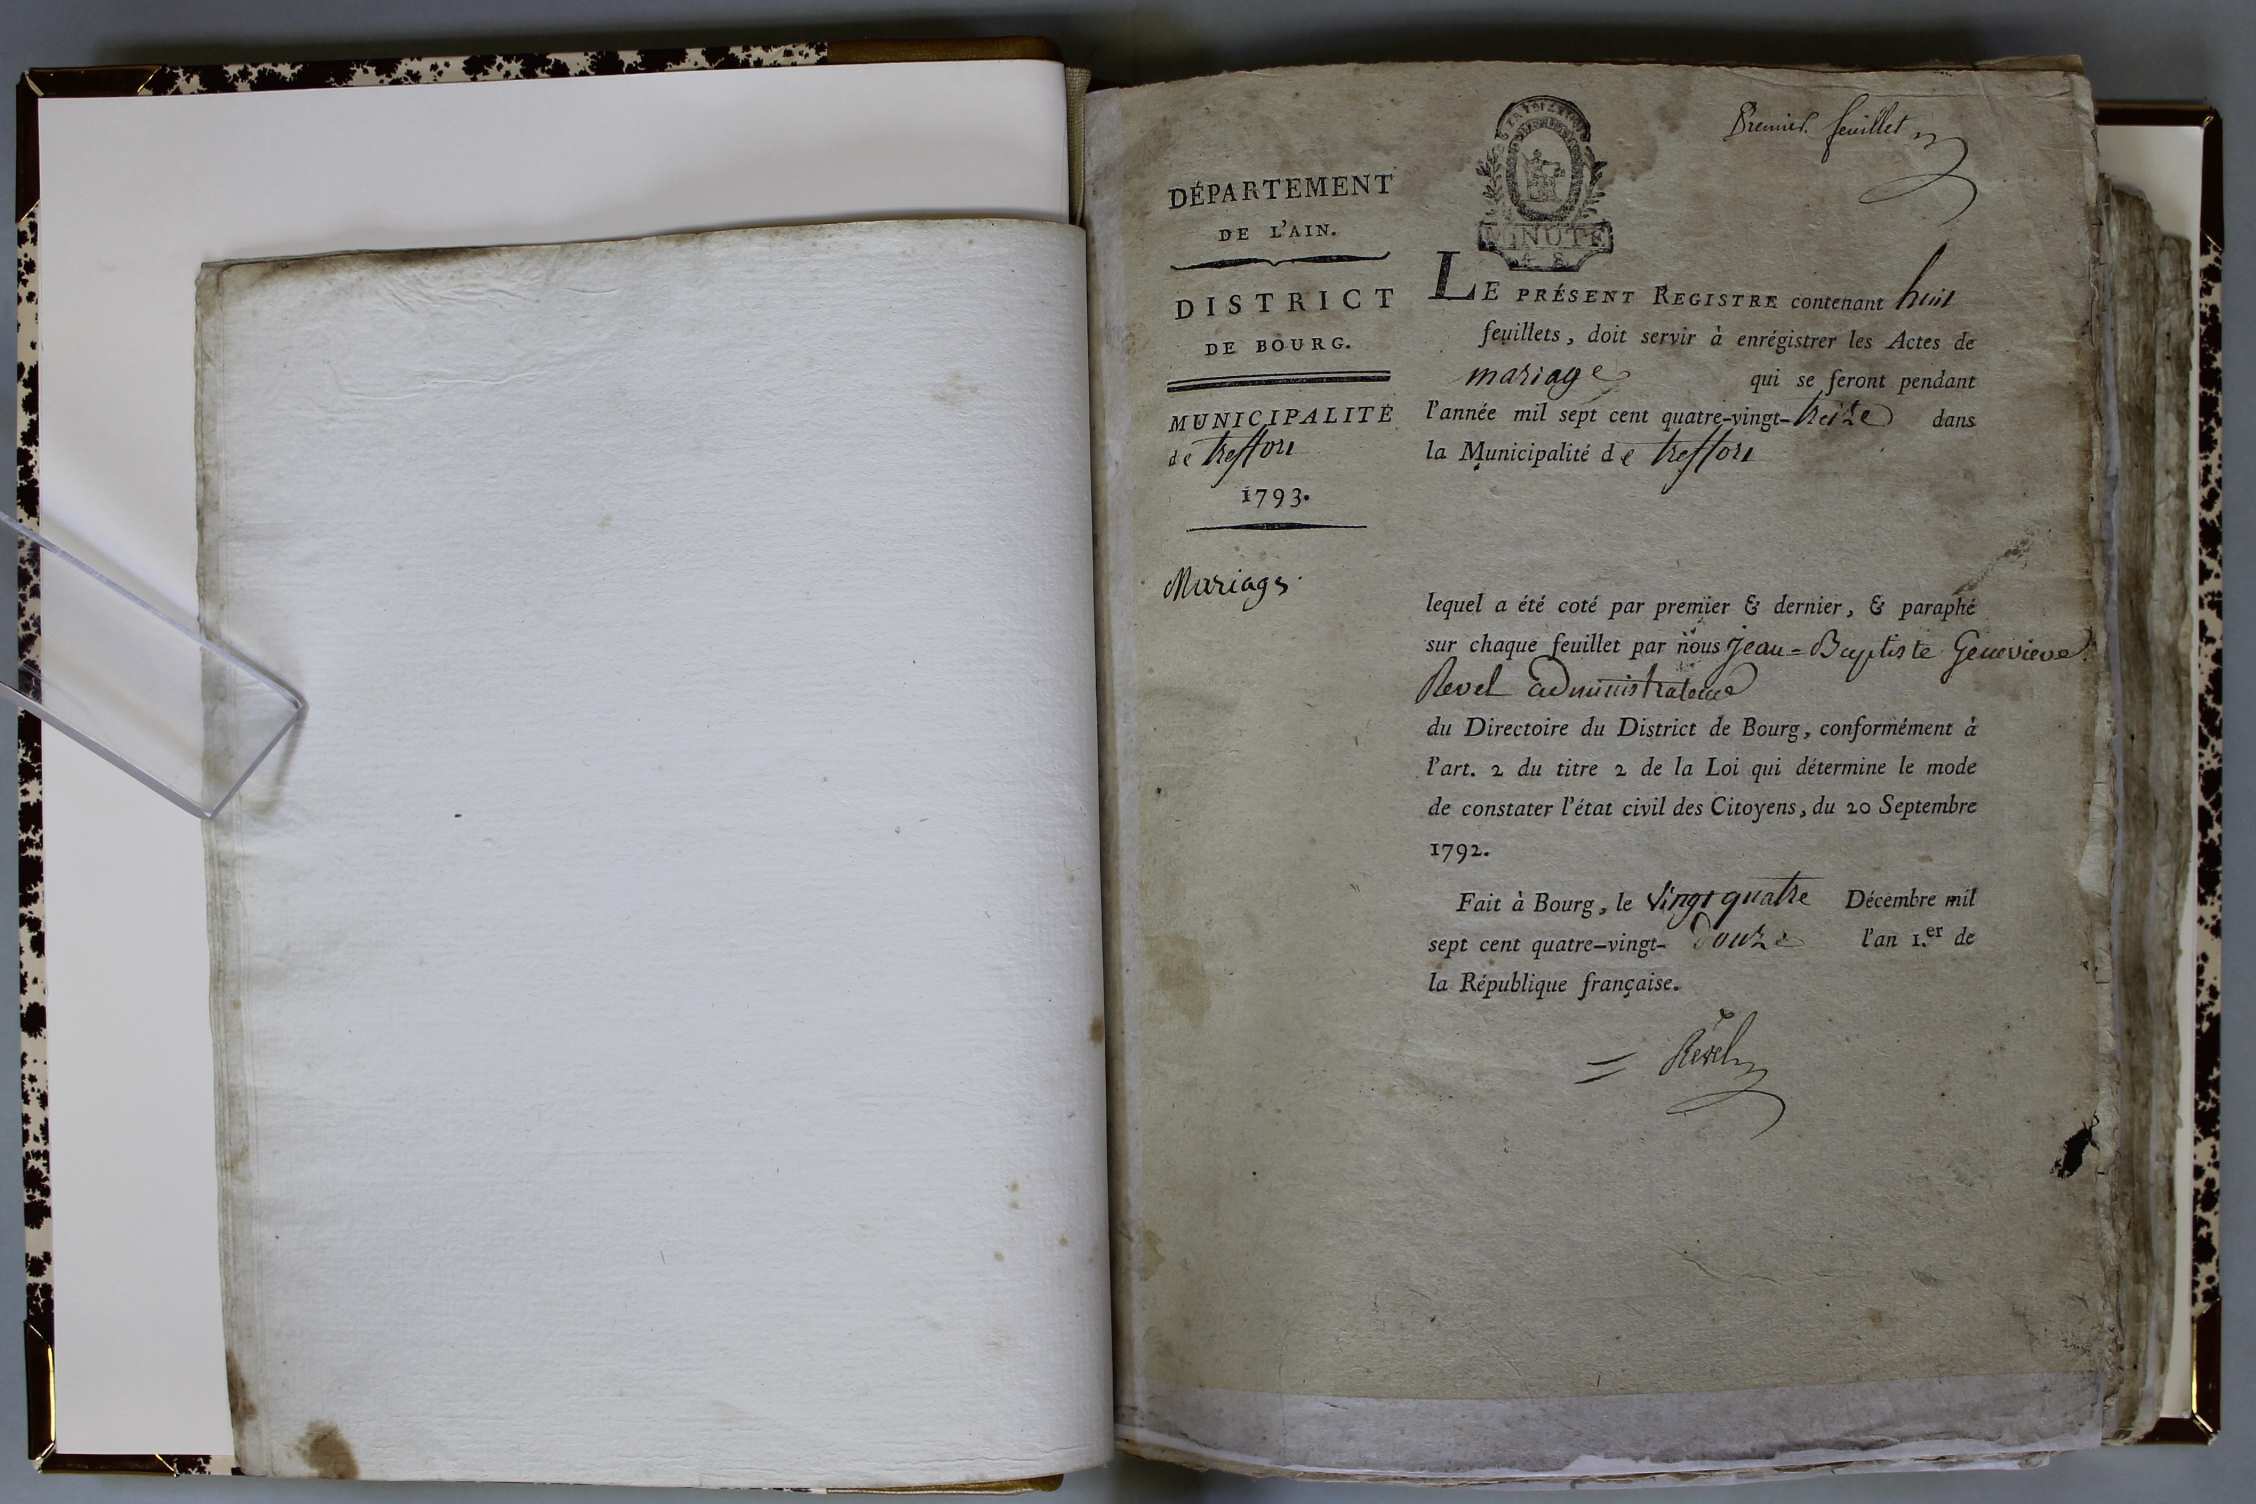 Premier feuillet
DÉPARTEMENT
DE L'AIN.
DISTRICT
DE BOURG.
MUNICIPALITÉ
de treffort
1793.
Mariages
MINUTE
LE PRÉSENT REGISTRE contenant huit
feuillets, doit servir à enrégistrer les Actes de
mariage qui se feront pendant
l'année mil sept cent quatre-vingt-treize dans
la Municipalité de treffort
lequel a été coté par premier & dernier, & paraphé
sur chaque feuillet par nous jean=Baptiste Genevieve
Revel administrateur
du Directoire du District de Bourg, conformément à
l'art. 2 du titre 2 de la Loi qui détermine le mode
de constater l'état civil des Citoyens, du 20 Septembre
1792.
Fait à Bourg, le vingt quatre Décembre mil
sept cent quatre-vingt-douze l'an 1.er de
la République française.
= Revel